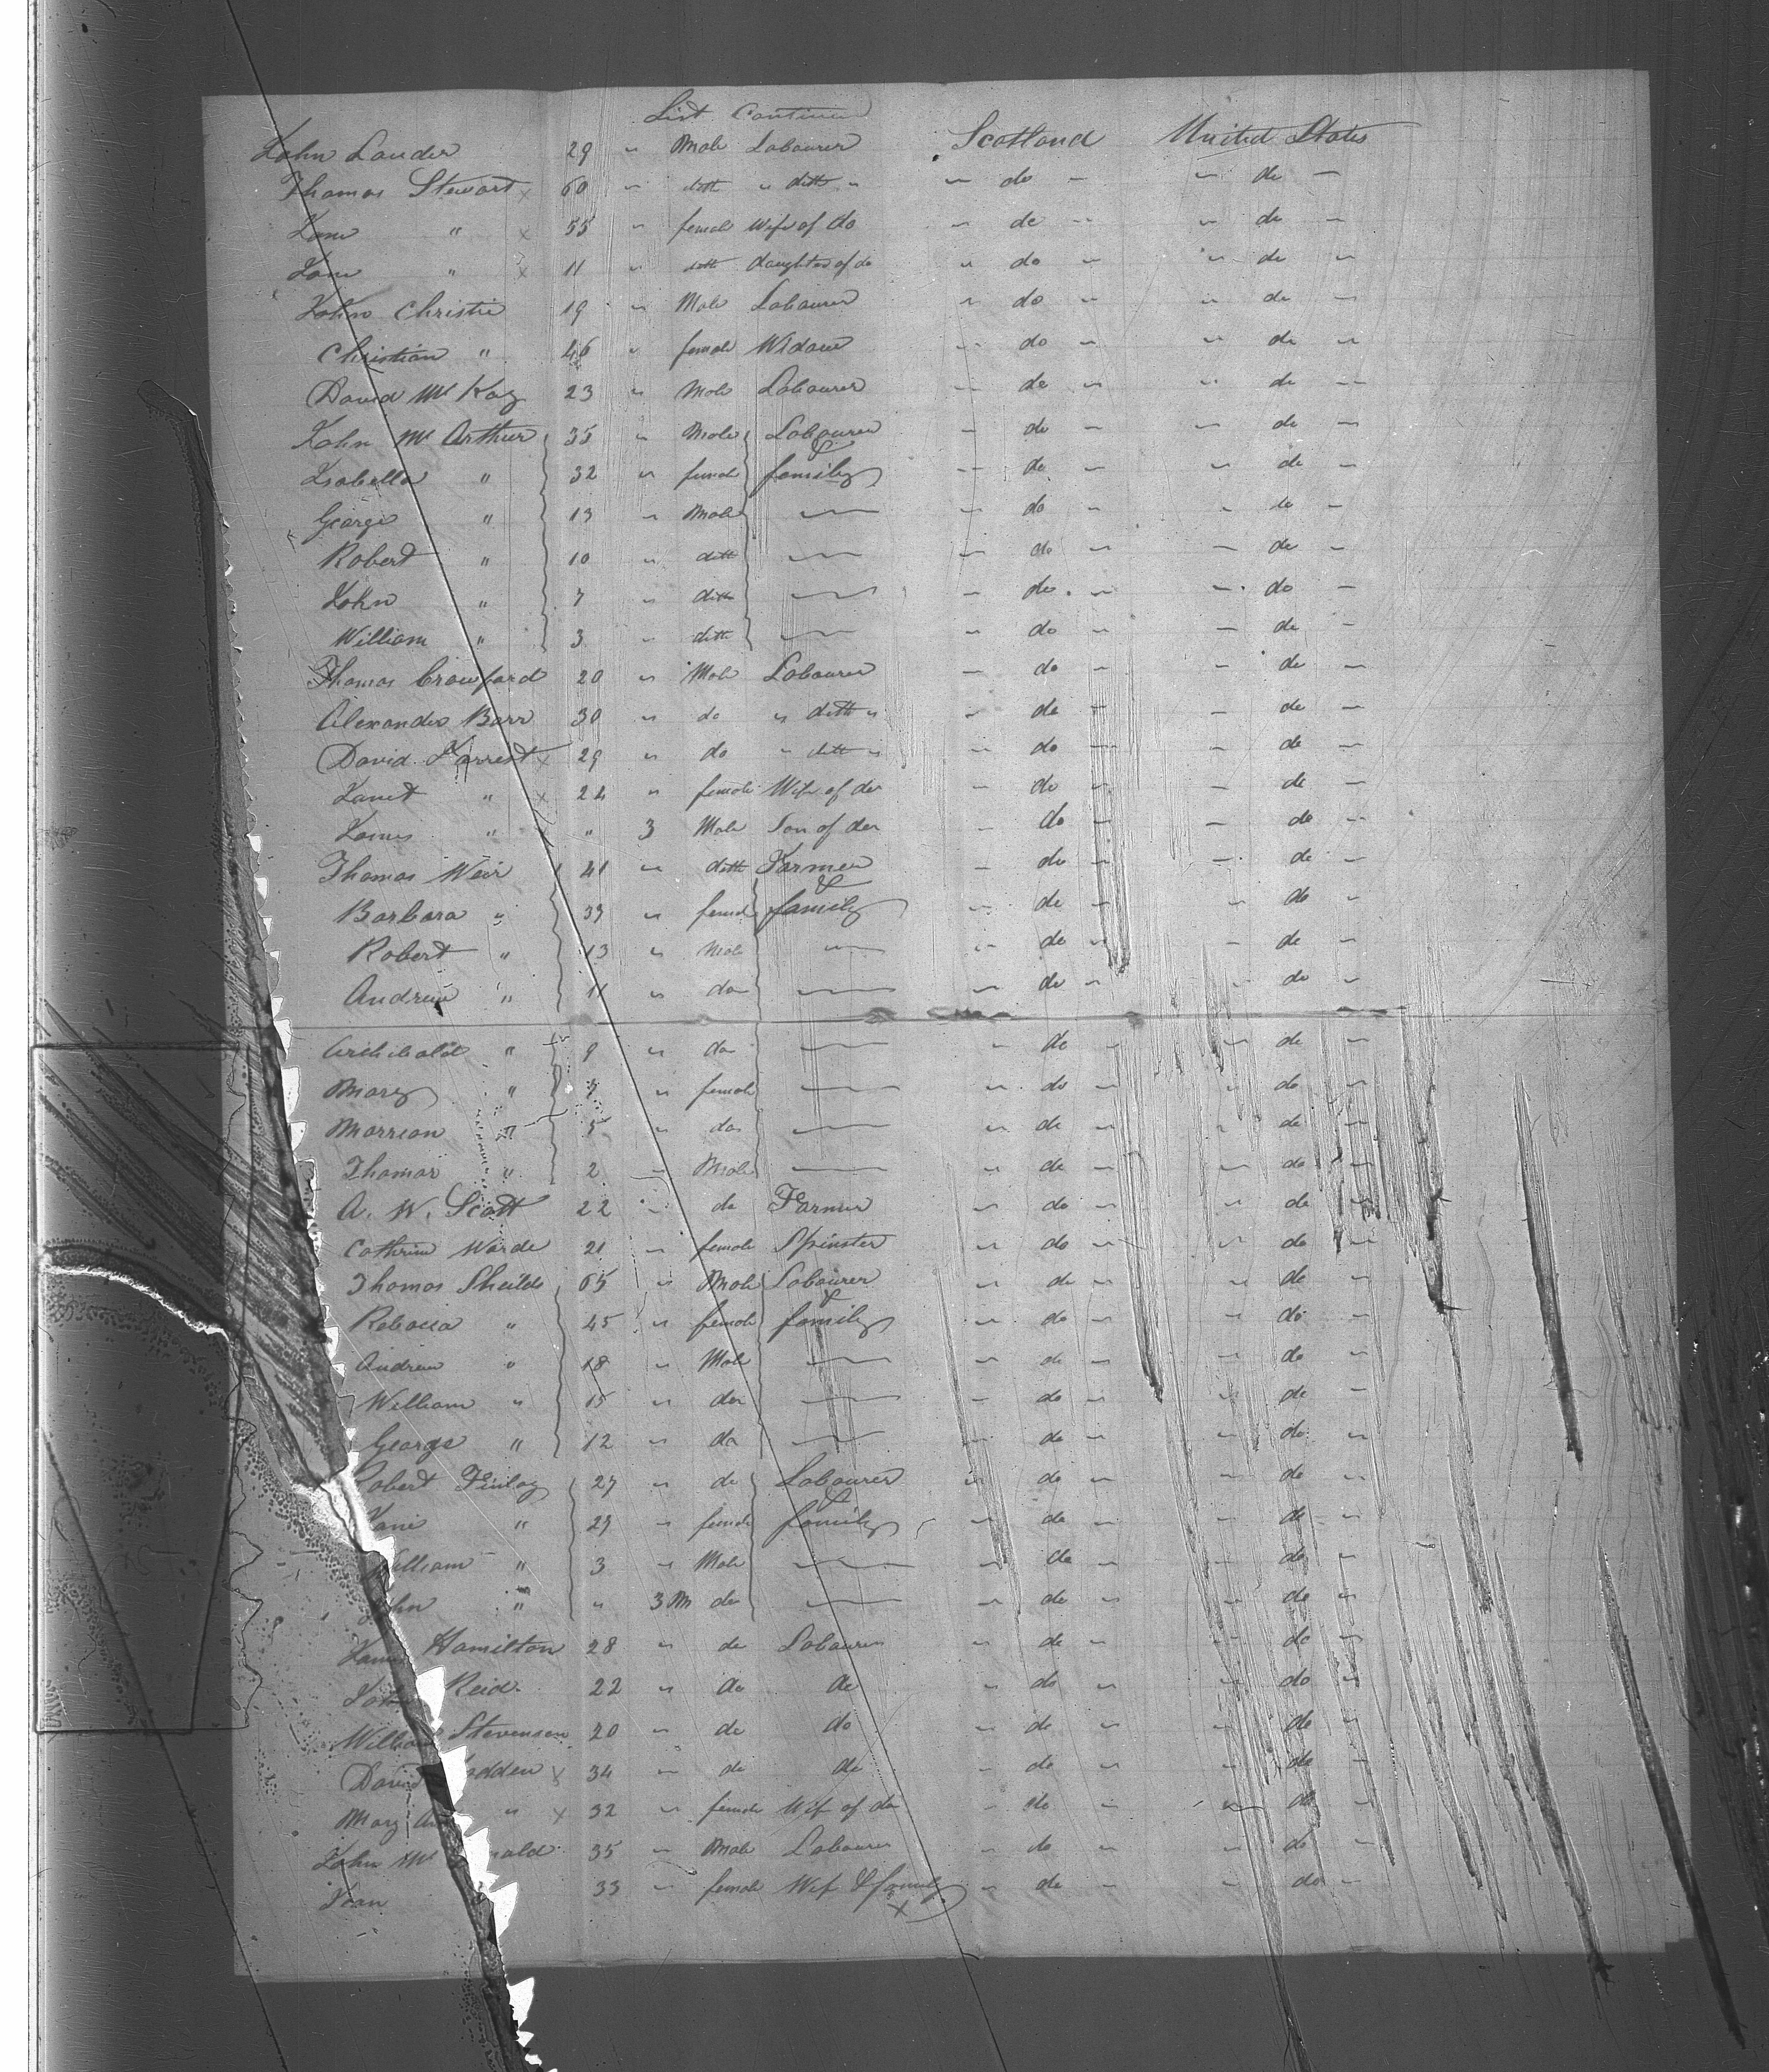 List Continued
John Lauder 29 " Male Labourer Scotland United States
Thomas Stewart x 60 " ditto " ditto " " do " " do "
Jane " x 55 " female Wife of do " do " " do "
Jane " x 11 " ditto daughter of do " do " " do "
John Christie 19 " Male Labourer " do " " do "
Christian " 46 " female Widow " do " " do "
David Mc Kay 23 " Male Labourer " do " " do "
John Mc Arthur 35 " Male Labourer & " do " " do "
Isabella " 32 " female family " do " " do "
George " 13 " Male " do " " do "
Robert " 10 " ditto " do " " do "
John " 7 " ditto " do " " do "
William " 3 " ditto " do " " do "
Thomas Crawford 20 " Male Labourer " do " " do "
Alexander Barr 30 " do " ditto " " do " " do "
David Forrest x 29 " do " ditto " " do " " do "
Janet " x 24 " female Wife of do " do " " do "
James " x " 3 Male Son of do " do " " do "
Thomas Weir 41 " ditto Farmer & " do " " do "
Barbara " 33 " female family " do " " do "
Robert " 13 " Male " do " " do "
Andrew " 11 " do " do " " do "
Archibald " 9 " do " do " " do "
Mary " 7 " female " do " " do "
Marrion " 5 " do " do " " do "
Thomas " 2 " Male " do " " do "
A. W. Scott 22 " do Farmer " do " " do "
Cathrine Warde 21 " female Spinster " do " " do "
Thomas Sheilds 65 " Male Labourer & " do " " do "
Rebecca " 45 " female family " do " " do "
Andrew " 18 " Male " do " " do "
William " 15 " do " do " " do "
George " 12 " do " do " " do "
Robert Finlay 27 " do Labourer & " do " " do "
Jane " 29 " female family " do " " do "
William " 3 " Male " do " " do "
John " " 3 M do " do " " do "
James Hamilton 28 " do Labourer " do " " do "
John Reid 22 " do do " do " " do "
William Stevenson 20 " do do " do " " do "
David x 34 " do do " do " " do "
Mary " x 32 " female Wife of do " do " " do "
John Mc 35 " Male Labourer " do " " do "
Jean 33 " female Wife & family x " do " " do "